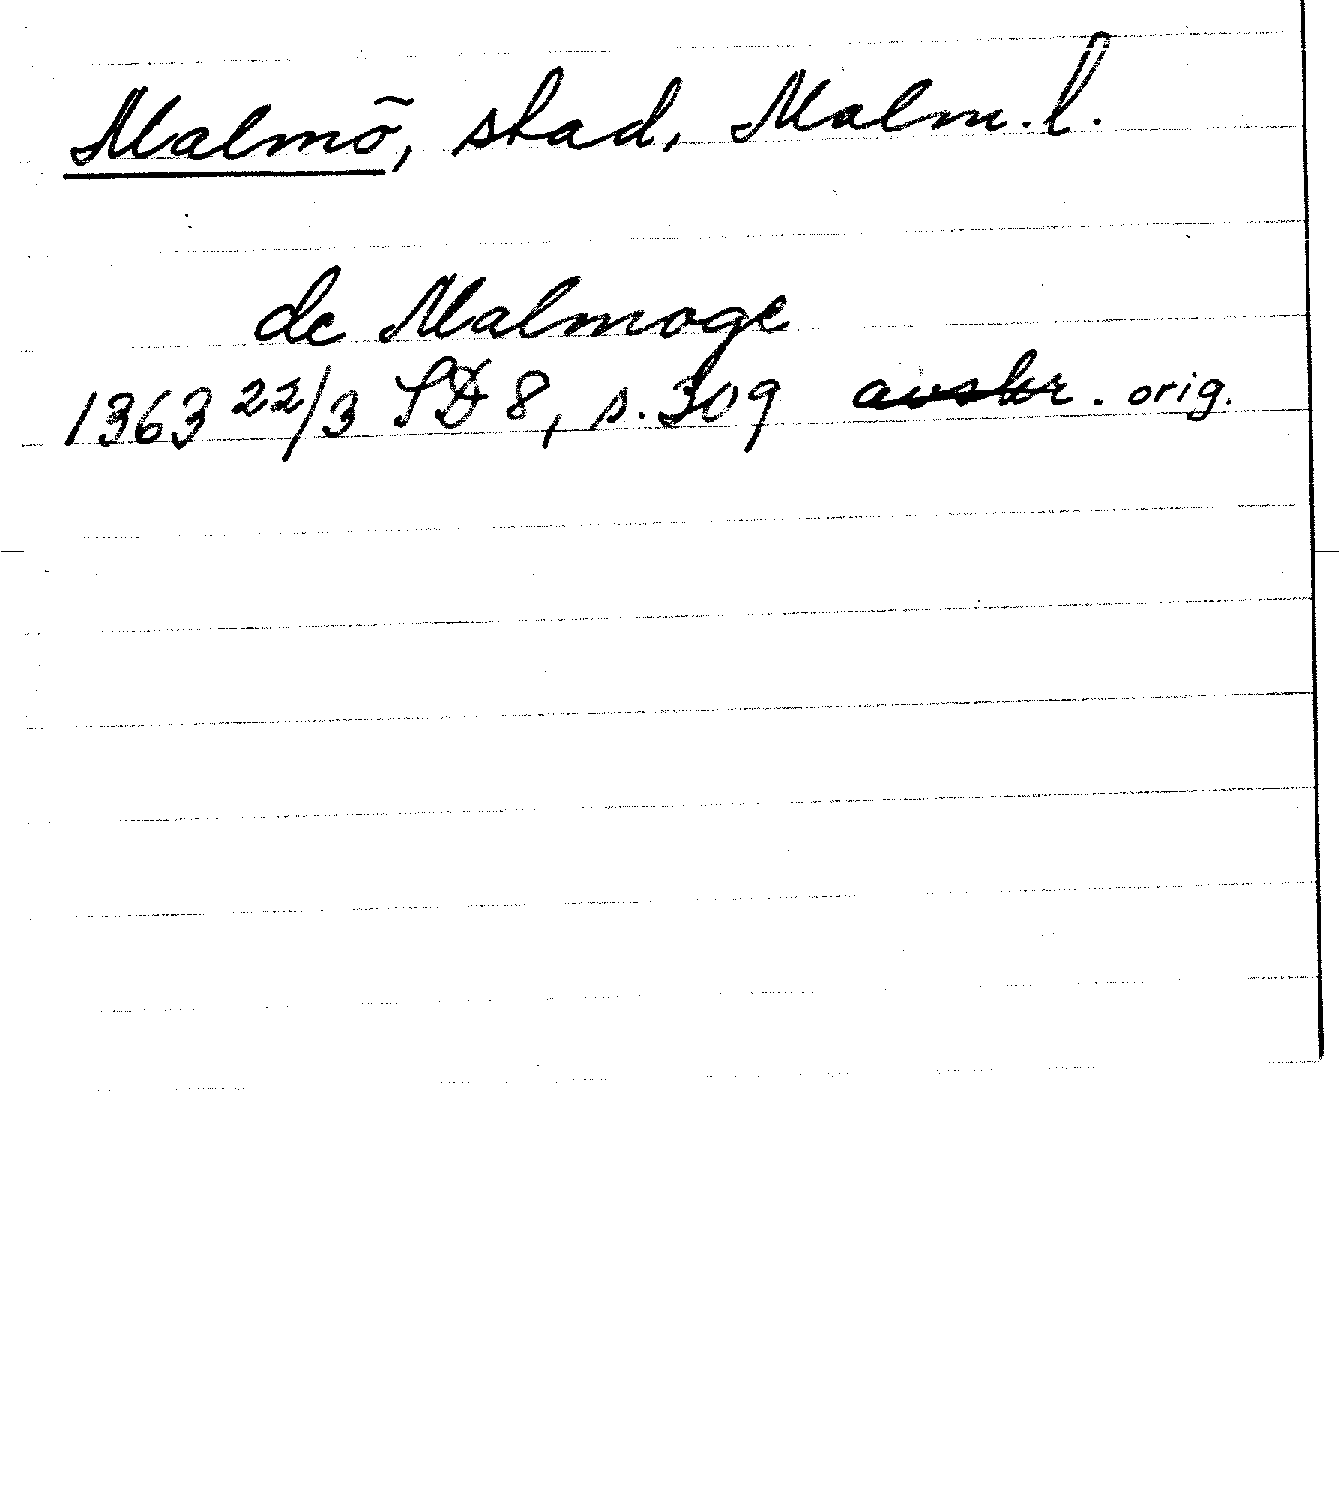 Malmö, stad, Malm. l.
de Malmoge
1363 22/3 SD 8, s. 309 avskr. orig.